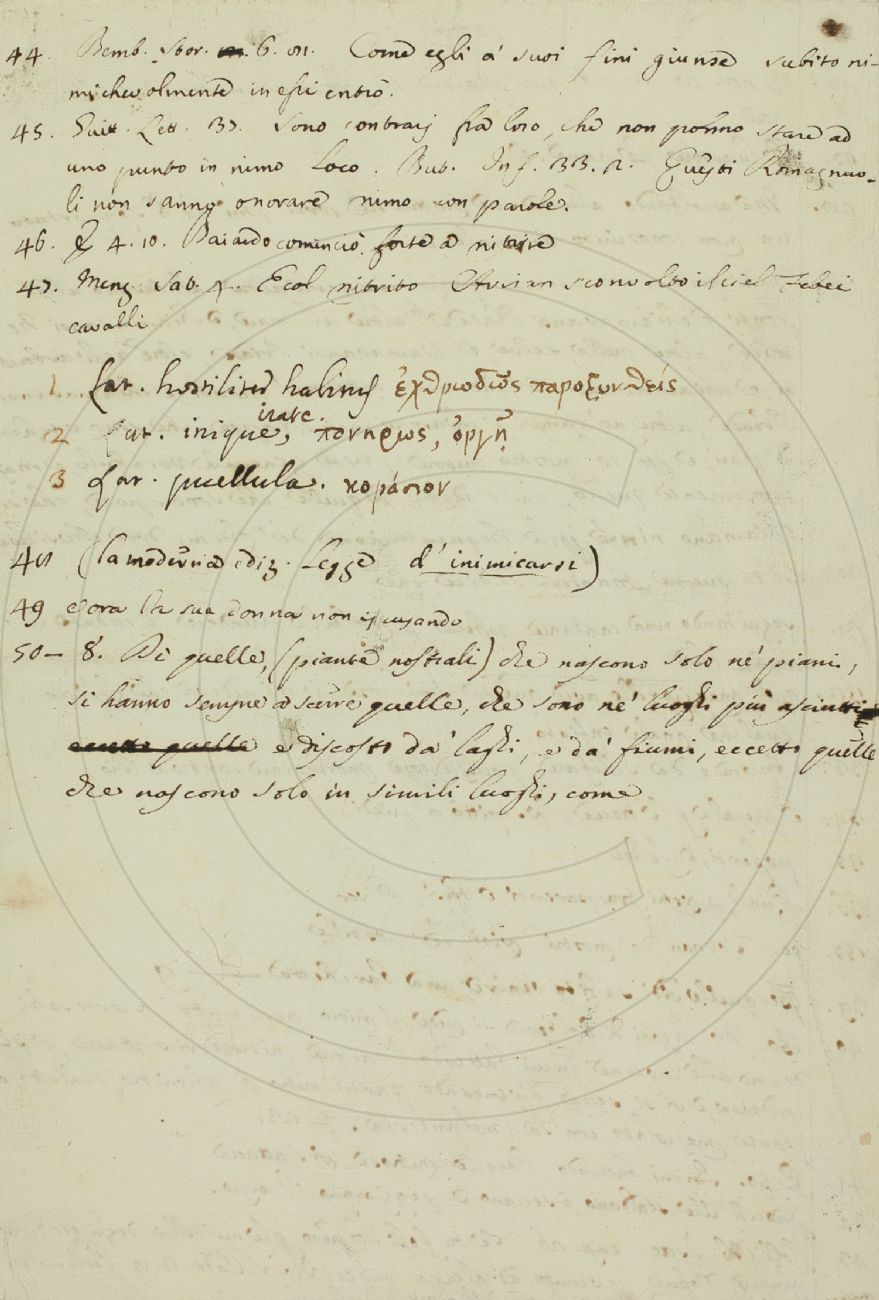 44. Bemb. Stor. 6. 81. Come egli a' suoi fini giunse subito ni-
michevolmente
45. Guitt. Lett. 37. Sono contrarj fra loro, che non possono stare ad
uno punto in nimo loco. But. Inf. 33. 2. Questi Romagnuo-
li non sanno onorare nimo con parole.
46. E 4. 10. Baiardo cominciò forte a nitrire
47. Menz. Sat. 4. E col nitrito sconvolto il ciel Febei
cavalli
1 Lat. hostiliter ἐχθριωδῶς παροξυνθείς
irate.
2 Lat. inique, πονηρως, ὀργῇ
3 Lat. puellula. κοράσιον
48 (la moderna ediz. legge d'inimicarsi)
49 e ora la sua donna non
50- 8. Di quelle, (piante nostrali) che nascono solo ne' piani,
si hanno sempre a scerre quelle, che sono ne' luoghi più asciutti
eccetto quelle e discosto da' laghi, e da' fiumi, eccetto quelle
che nascono solo in simili luoghi, come